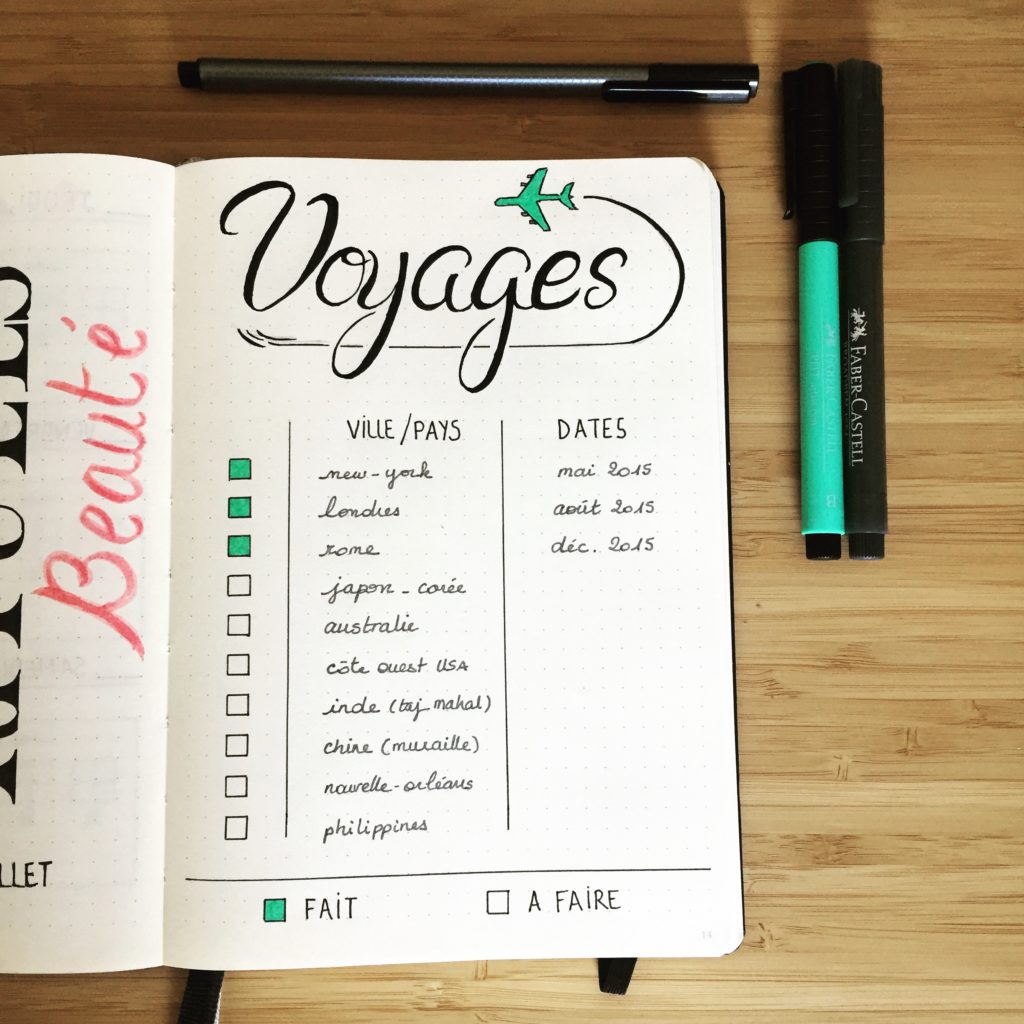 Beauté
LLET
Voyages
VILLE/PAYS DATES
new-york mai 2015
londres août 2015
rome déc. 2015
japon - corée
australie
côte ouest USA
inde (taj mahal)
chine (muraille)
nouvelle-orléans
philippines
FAIT A FAIRE
14
FABER-CASTELL